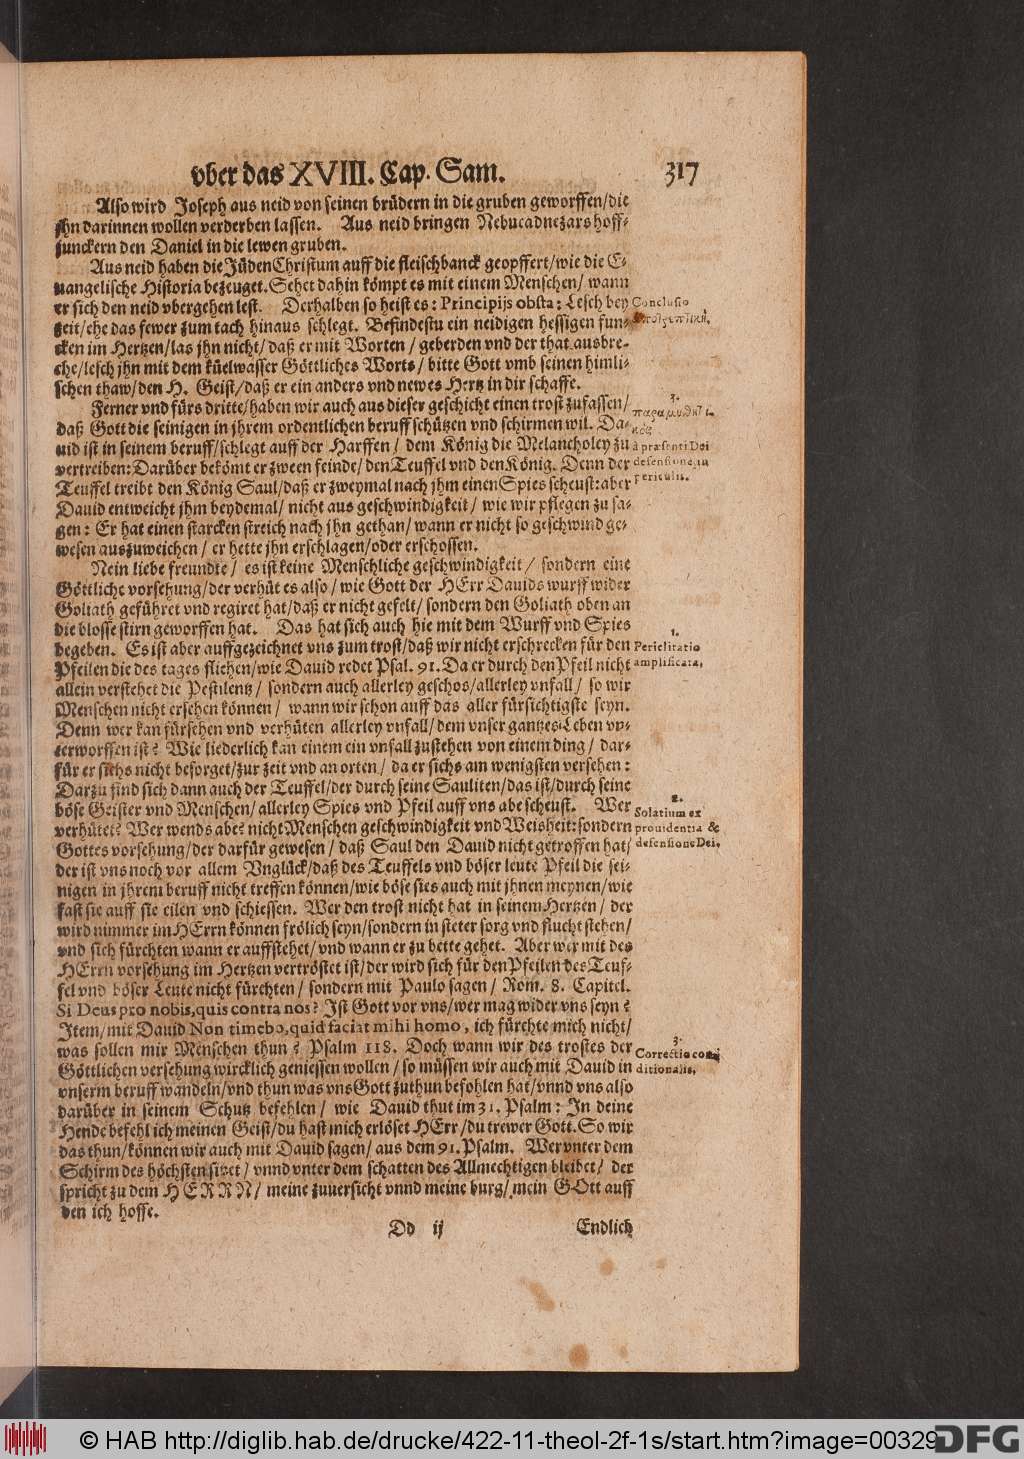 vber das XVIII. Cap. Sam. 317
Also wird Joseph aus neid von seinen brüdern in die gruben geworffen/die
jhn darinnen wollen verderben lassen. Aus neid bringen Nebucadnezars hoff-
junckern den Daniel in die lewen gruben.
Aus neid haben die Jüden Christum auff die fleischbanck geopffert/wie die E-
uangelische Historia bezeuget. Sehet dahin kömpt es mit einem Menschen/ wann
er sich den neid vbergehen lest. Derhalben so heist es: Principijs obsta: Lesch bey
Conclusio
zeit/ehe das fewer zum tach hinaus schlegt. Befindestu ein neidigen hessigen fun-
cken im Hertzen/las jhn nicht/daß er mit Worten/ geberden vnd der that ausbre-
che/lesch jhn mit dem küelwasser Göttliches Worts/ bitte Gott vmb seinen himli-
schen thaw/den H. Geist/daß er ein anders vnd newes Hertz in dir schaffe.
Ferner vnd fürs dritte/haben wir auch aus dieser geschicht einen trost zufassen/
3.
daß Gott die seinigen in jhrem ordentlichen beruff schützen vnd schirmen wil. Da-
παραμυθητι-
κὸς
uid ist in seinem beruff/schlegt auff der Harffen/ dem König die Melancholey zu
à præsenti Dei
vertreiben: Darüber bekömt er zween feinde/ den Teuffel vnd den König. Denn der
defensione in
Teuffel treibt den König Saul/daß er zweymal nach jhm einen Spies scheust: aber
periculis.
Dauid entweicht jhm beydemal/ nicht aus geschwindigkeit/ wie wir pflegen zu sa-
gen: Er hat einen starcken streich nach jhn gethan/ wann er nicht so geschwind ge-
wesen auszuweichen/ er hette jhn erschlagen/oder erschossen.
Nein liebe freundte/ es ist keine Menschliche geschwindigkeit/ sondern eine
Göttliche vorsehung/der verhüt es also/ wie Gott der HErr Dauids wurff wider
Goliath geführet vnd regiret hat/daß er nicht gefelt/ sondern den Goliath oben an
die blosse stirn geworffen hat. Das hat sich auch hie mit dem Wurff vnd Spies
1.
begeben. Es ist aber auffgezeichnet vns zum trost/daß wir nicht erschrecken für den
Periclitatio
Pfeilen die des tages fliehen/wie Dauid redet Psal. 91. Da er durch den Pfeil nicht
amplificata.
allein verstehet die Pestilentz/ sondern auch allerley geschos/allerley vnfall/ so wir
Menschen nicht ersehen können/ wann wir schon auff das aller fürsichtigste seyn.
Denn wer kan fürsehen vnd verhüten allerley vnfall/dem vnser gantzes Leben vn-
terworffen ist? Wie liederlich kan einem ein vnfall zustehen von einem ding/ dar-
für er sichs nicht besorget/zur zeit vnd an orten/ da er sichs am wenigsten versehen:
Darzu find sich dann auch der Teuffel/der durch seine Sauliten/das ist/durch seine
böse Geister vnd Menschen/allerley Spies vnd Pfeil auff vns abescheust. Wer
2.
Solatium ex
verhütet? Wer wends abe? nicht Menschen geschwindigkeit vnd Weisheit: sondern
prouidentia &
Gottes vorsehung/der darfür gewesen/ daß Saul den Dauid nicht getroffen hat/
defensione Dei.
der ist vns noch vor allem Vnglück/daß des Teuffels vnd böser leute Pfeil die sei-
nigen in jhrem beruff nicht treffen können/wie böse sies auch mit jhnen meynen/wie
fast sie auff sie eilen vnd schiessen. Wer den trost nicht hat in seinem Hertzen/ der
wird nimmer im HErrn können frölich seyn/sondern in steter sorg vnd flucht stehen/
vnd sich fürchten wann er auffstehet/vnd wann er zu bette gehet. Aber wer mit des
HErrn vorsehung im Hertzen vertröstet ist/der wird sich für den Pfeilen des Teuf-
fel vnd böser Leute nicht fürchten/ sondern mit Paulo sagen/ Rom. 8. Capitel.
Si Deus pro nobis, quis contra nos? Ist Gott vor vns/wer mag wider vns seyn?
Item/mit Dauid Non timebo, quid faciat mihi homo, ich fürchte mich nicht/
3.
was sollen mir Menschen thun? Psalm 118. Doch wann wir des trostes der
Correctio con-
Göttlichen versehung wircklich geniessen wollen/ so müssen wir auch mit Dauid in
ditionalis.
vnserm beruff wandeln/vnd thun was vns Gott zuthun befohlen hat/vnnd vns also
darüber in seinem Schutz befehlen/ wie Dauid thut im 31. Psalm: In deine
Hende befehl ich meinen Geist/du hast mich erlöset HErr/du trewer Gott. So wir
das thun/können wir auch mit Dauid sagen/ aus dem 91. Psalm. Wer vnter dem
Schirm des höchsten sitzet/ vnnd vnter dem schatten des Allmechtigen bleibet/ der
spricht zu dem HERRN/ meine zuuersicht vnnd meine burg/ mein GOtt auff
den ich hoffe.
Dd ij Endlich
© HAB http://diglib.hab.de/drucke/422-11-theol-2f-1s/start.htm?image=00329
DFG